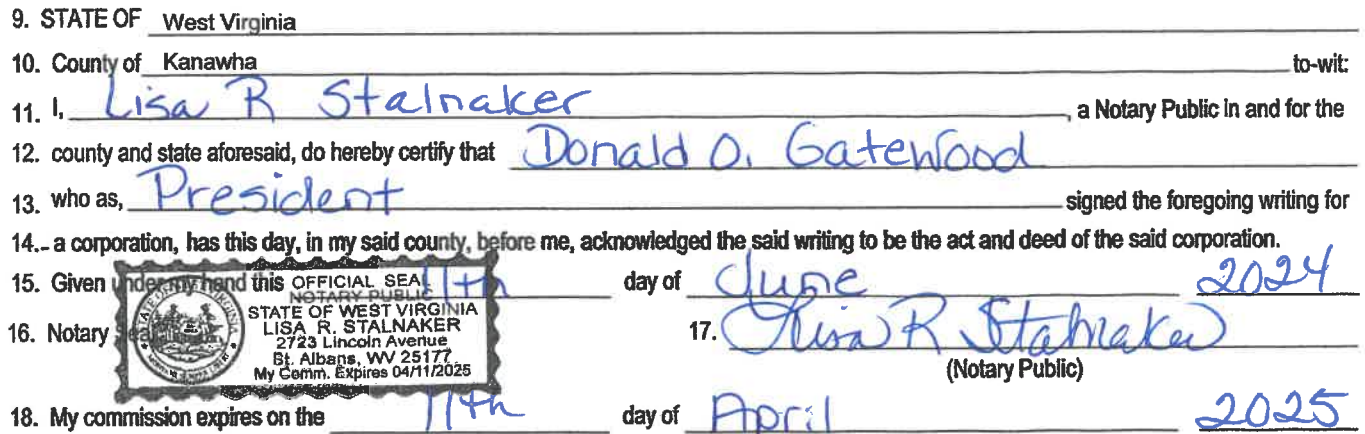 9. STATE OF West Virginia
10. County of Kanawha to-wit:
11. I, Lisa R Stalnaker, a Notary Public in and for the
12. county and state aforesaid, do hereby certify that Donald O. Gatewood
13. who as, President signed the foregoing writing for
14. a corporation, has this day, in my said county, before me, acknowledged the said writing to be the act and deed of the said corporation.
15. Given under my hand this 11th day of June 2024
OFFICIAL SEAL
NOTARY PUBLIC
STATE OF WEST VIRGINIA
LISA R. STALNAKER
2723 Lincoln Avenue
St. Albans, WV 25177
My Comm. Expires 04/11/2025
16. Notary
17. Lisa R Stalnaker
(Notary Public)
18. My commission expires on the 11th day of April 2025